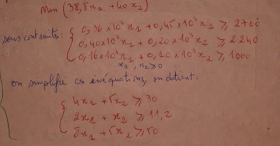 Min (38,5x₁ + 40x₂)
sous contraintes : { 0,36×10³x₁ + 0,45×10³x₂ ≥ 2700
0,40×10³x₁ + 0,20×10³x₂ ≥ 2240
0,16×10³x₁ + 0,10×10³x₂ ≥ 1000
x₁, x₂ ≥ 0
on simplifie ces inéquations, on obtient :
{ 4x₁ + 5x₂ ≥ 30
2x₁ + x₂ ≥ 11,2
8x₁ + 5x₂ ≥ 50